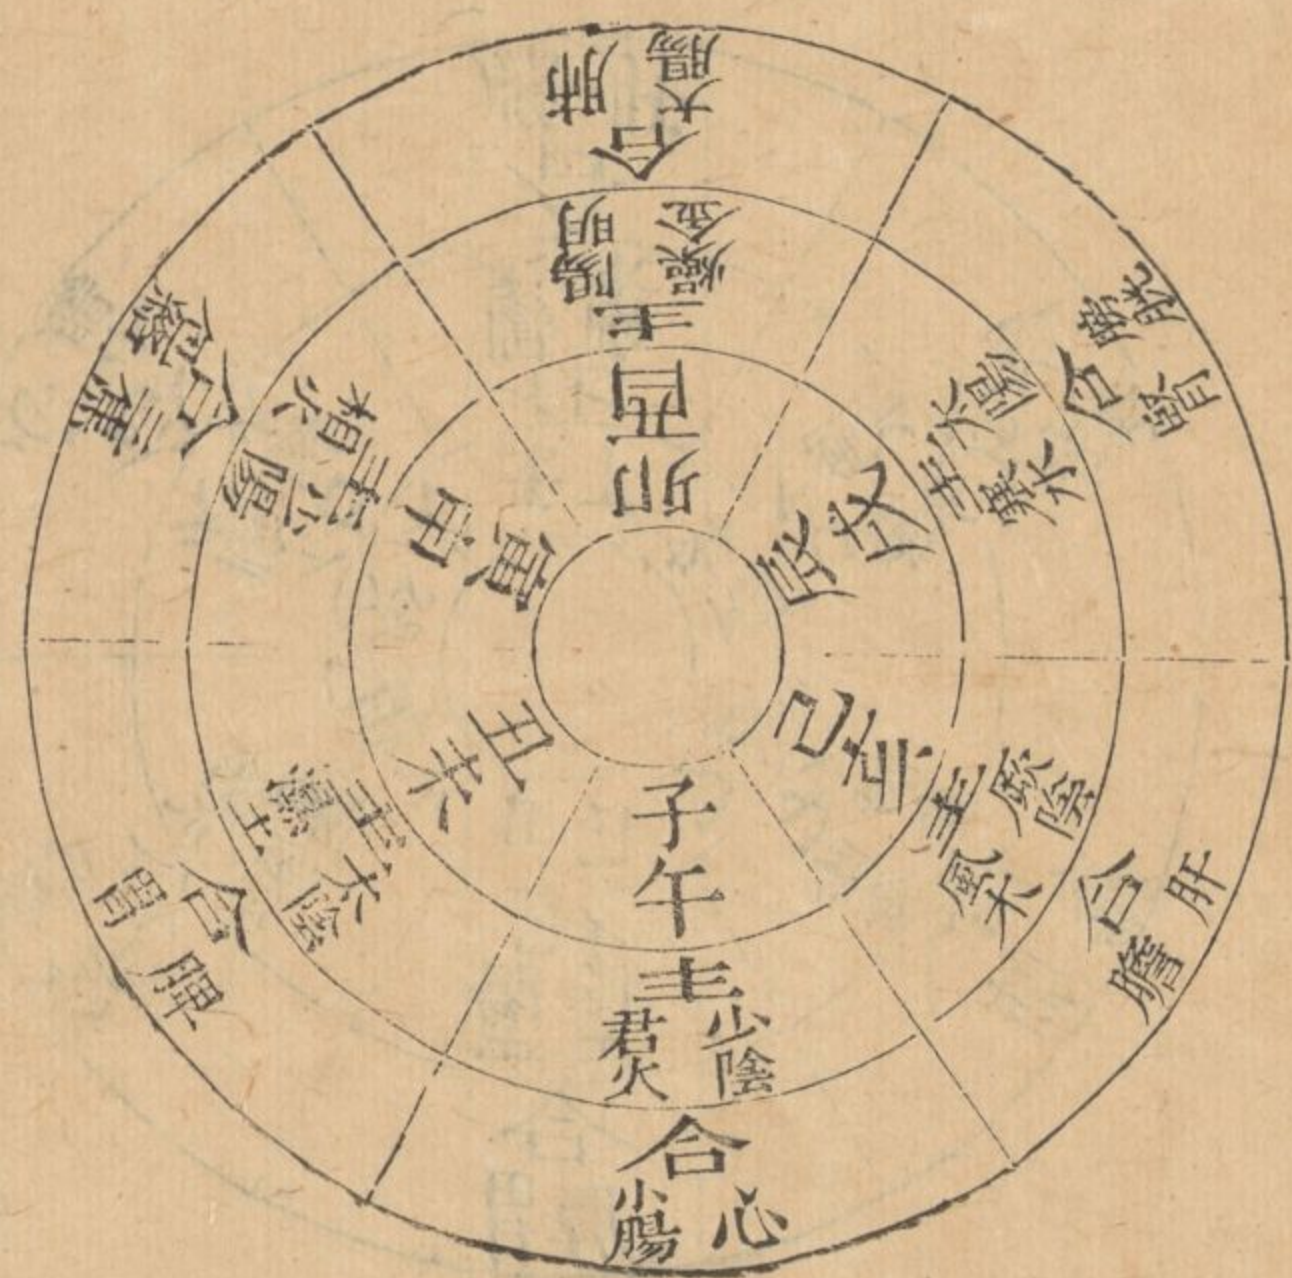 子午
主
少陰
君火
合
心
小腸
丑未
主
太陰
濕土
合
脾
胃
寅申
主
少陽
相火
合
三焦
包絡
卯酉
主
陽明
燥金
合
肺
大腸
辰戌
主
太陽
寒水
合
膀胱
腎
巳亥
主
厥陰
風木
合
肝
膽